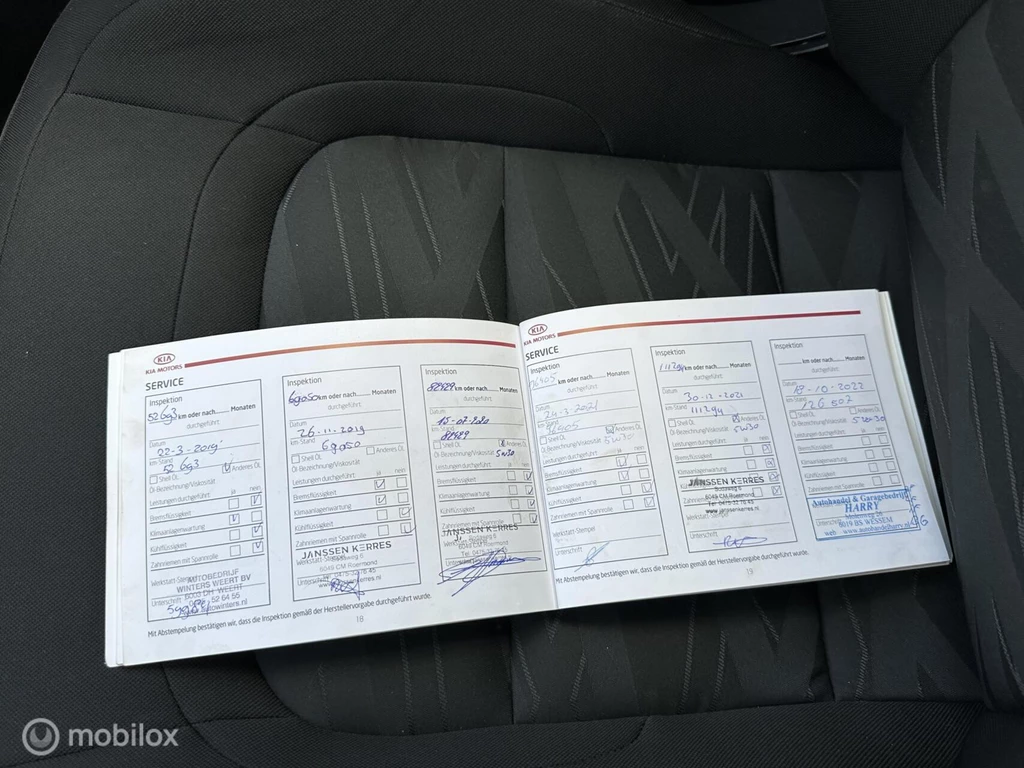 KIA
KIA MOTORS
SERVICE
Inspektion
52693 km oder nach Monaten
durchgeführt:
Datum
22-3-2019
km-Stand
52693
Shell Öl
Anderes Öl
Öl-Bezeichnung/Viskosität
Leistungen durchgeführt: ja nein
Bremsflüssigkeit
Klimaanlagenwartung
Kühlflüssigkeit
Zahnriemen mit Spannrolle
Werkstatt-Stempel
AUTOBEDRIJF
WINTERS WEERT BV
6003 DH WEERT
52 64 55
Unterschrift
Inspektion
69050 km oder nach Monaten
durchgeführt:
Datum
26-11-2019
km-Stand
69050
Shell Öl
Anderes Öl
Öl-Bezeichnung/Viskosität
Leistungen durchgeführt: ja nein
Bremsflüssigkeit
Klimaanlagenwartung
Kühlflüssigkeit
Zahnriemen mit Spannrolle
JANSSEN KERRES
6049 CM Roermond
Tel. 0475-32 76 45
Unterschrift
Inspektion
82929 km oder nach Monaten
durchgeführt:
Datum
km-Stand
82929
Shell Öl
Anderes Öl
Öl-Bezeichnung/Viskosität
5W30
Leistungen durchgeführt: ja nein
Bremsflüssigkeit
Klimaanlagenwartung
Kühlflüssigkeit
Zahnriemen mit Spannrolle
JANSSEN KERRES
Mit Abstempelung bestätigen wir, dass die Inspektion gemäß der Herstellervorgabe durchgeführt wurde.
18
KIA
KIA MOTORS
SERVICE
Inspektion
96405 km oder nach Monaten
durchgeführt:
Datum
24-3-2021
km-Stand
96405
Shell Öl
Anderes Öl
Öl-Bezeichnung/Viskosität
5W30
Leistungen durchgeführt: ja nein
Bremsflüssigkeit
Klimaanlagenwartung
Kühlflüssigkeit
Zahnriemen mit Spannrolle
Werkstatt-Stempel
Unterschrift
Inspektion
111294 km oder nach Monaten
durchgeführt:
Datum
30-12-2021
km-Stand
111294
Shell Öl
Anderes Öl
Öl-Bezeichnung/Viskosität
5W30
Leistungen durchgeführt: ja nein
Bremsflüssigkeit
Klimaanlagenwartung
JANSSEN KERRES
6049 CM Roermond
Tel. 0475-32 76 45
www.janssenkerres.nl
Werkstatt-Stempel
Unterschrift
Inspektion
km oder nach Monaten
durchgeführt:
Datum
19-10-2022
km-Stand
126502
Shell Öl
Anderes Öl
Öl-Bezeichnung/Viskosität
5W30
Leistungen durchgeführt: ja nein
Bremsflüssigkeit
Klimaanlagenwartung
Kühlflüssigkeit
Zahnriemen mit Spannrolle
Autohandel & Garagebedrijf
HARRY
6019 BS WESSEM
Unterschrift
Mit Abstempelung bestätigen wir, dass die Inspektion gemäß der Herstellervorgabe durchgeführt wurde.
19
mobilox